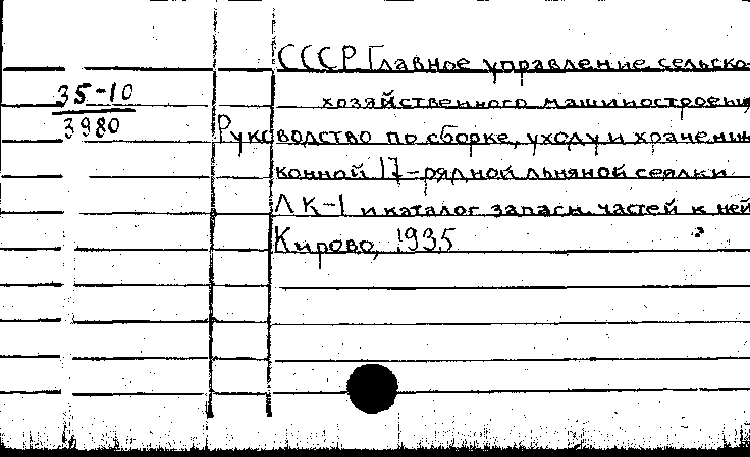 35-10
3980
СССР Главное управление сельско-
хозяйственного машиностроения
Руководство по сборке, уходу и хранению
конной 17-рядной льняной сеялки
ЛК-1 и каталог запасн. частей к ней
Кирово, 1935